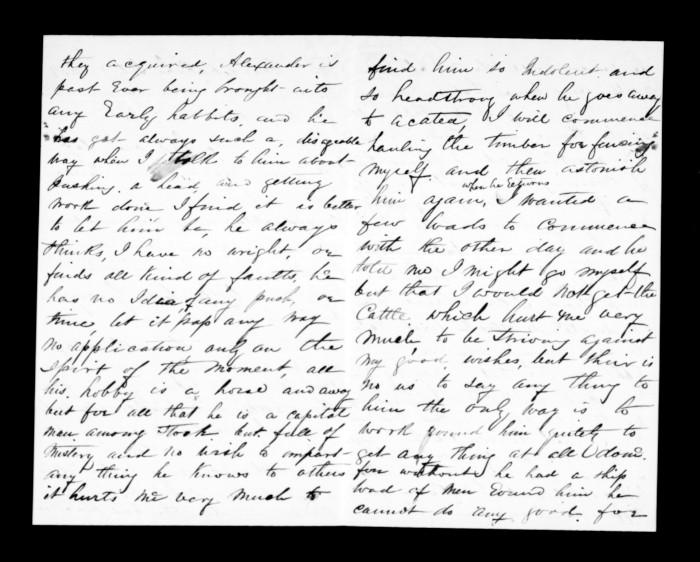 they acquired, Alexander is
past Ever being brought into
any Early habbits, and he
has got always such a, disageable
way when I talk to him about
pushing, a head, and getting
work done I find it is better
to let him be, he always
thinks, I have no wright, or
finds all Kind of faults, he
has no Idia of any push, or
time, let it pass any way
no application only on the
spirt of the moment, all
his hobby is a horse and away
but for all that he is a capital
man among Stock but full of
mistery and no wish to impart
any thing he knows to others
it hurts me very much to
find him so Indolent and
so headstrong when he goes away
to acated, I will commence
hauling the timber for fencing
myself and then astonish
when he returns
him again, I wanted a
few loads to commence
with the other day and he
told me I might go myself
but that I would not get the
Cattle which hurt me very
much, to be striving against
my good wishes, but thir is
no us to say any thing to
him the only way is to
work round him quitely to
get any thing at all done.
for without he had a ship
load of men Round him he
cannot do any good. for